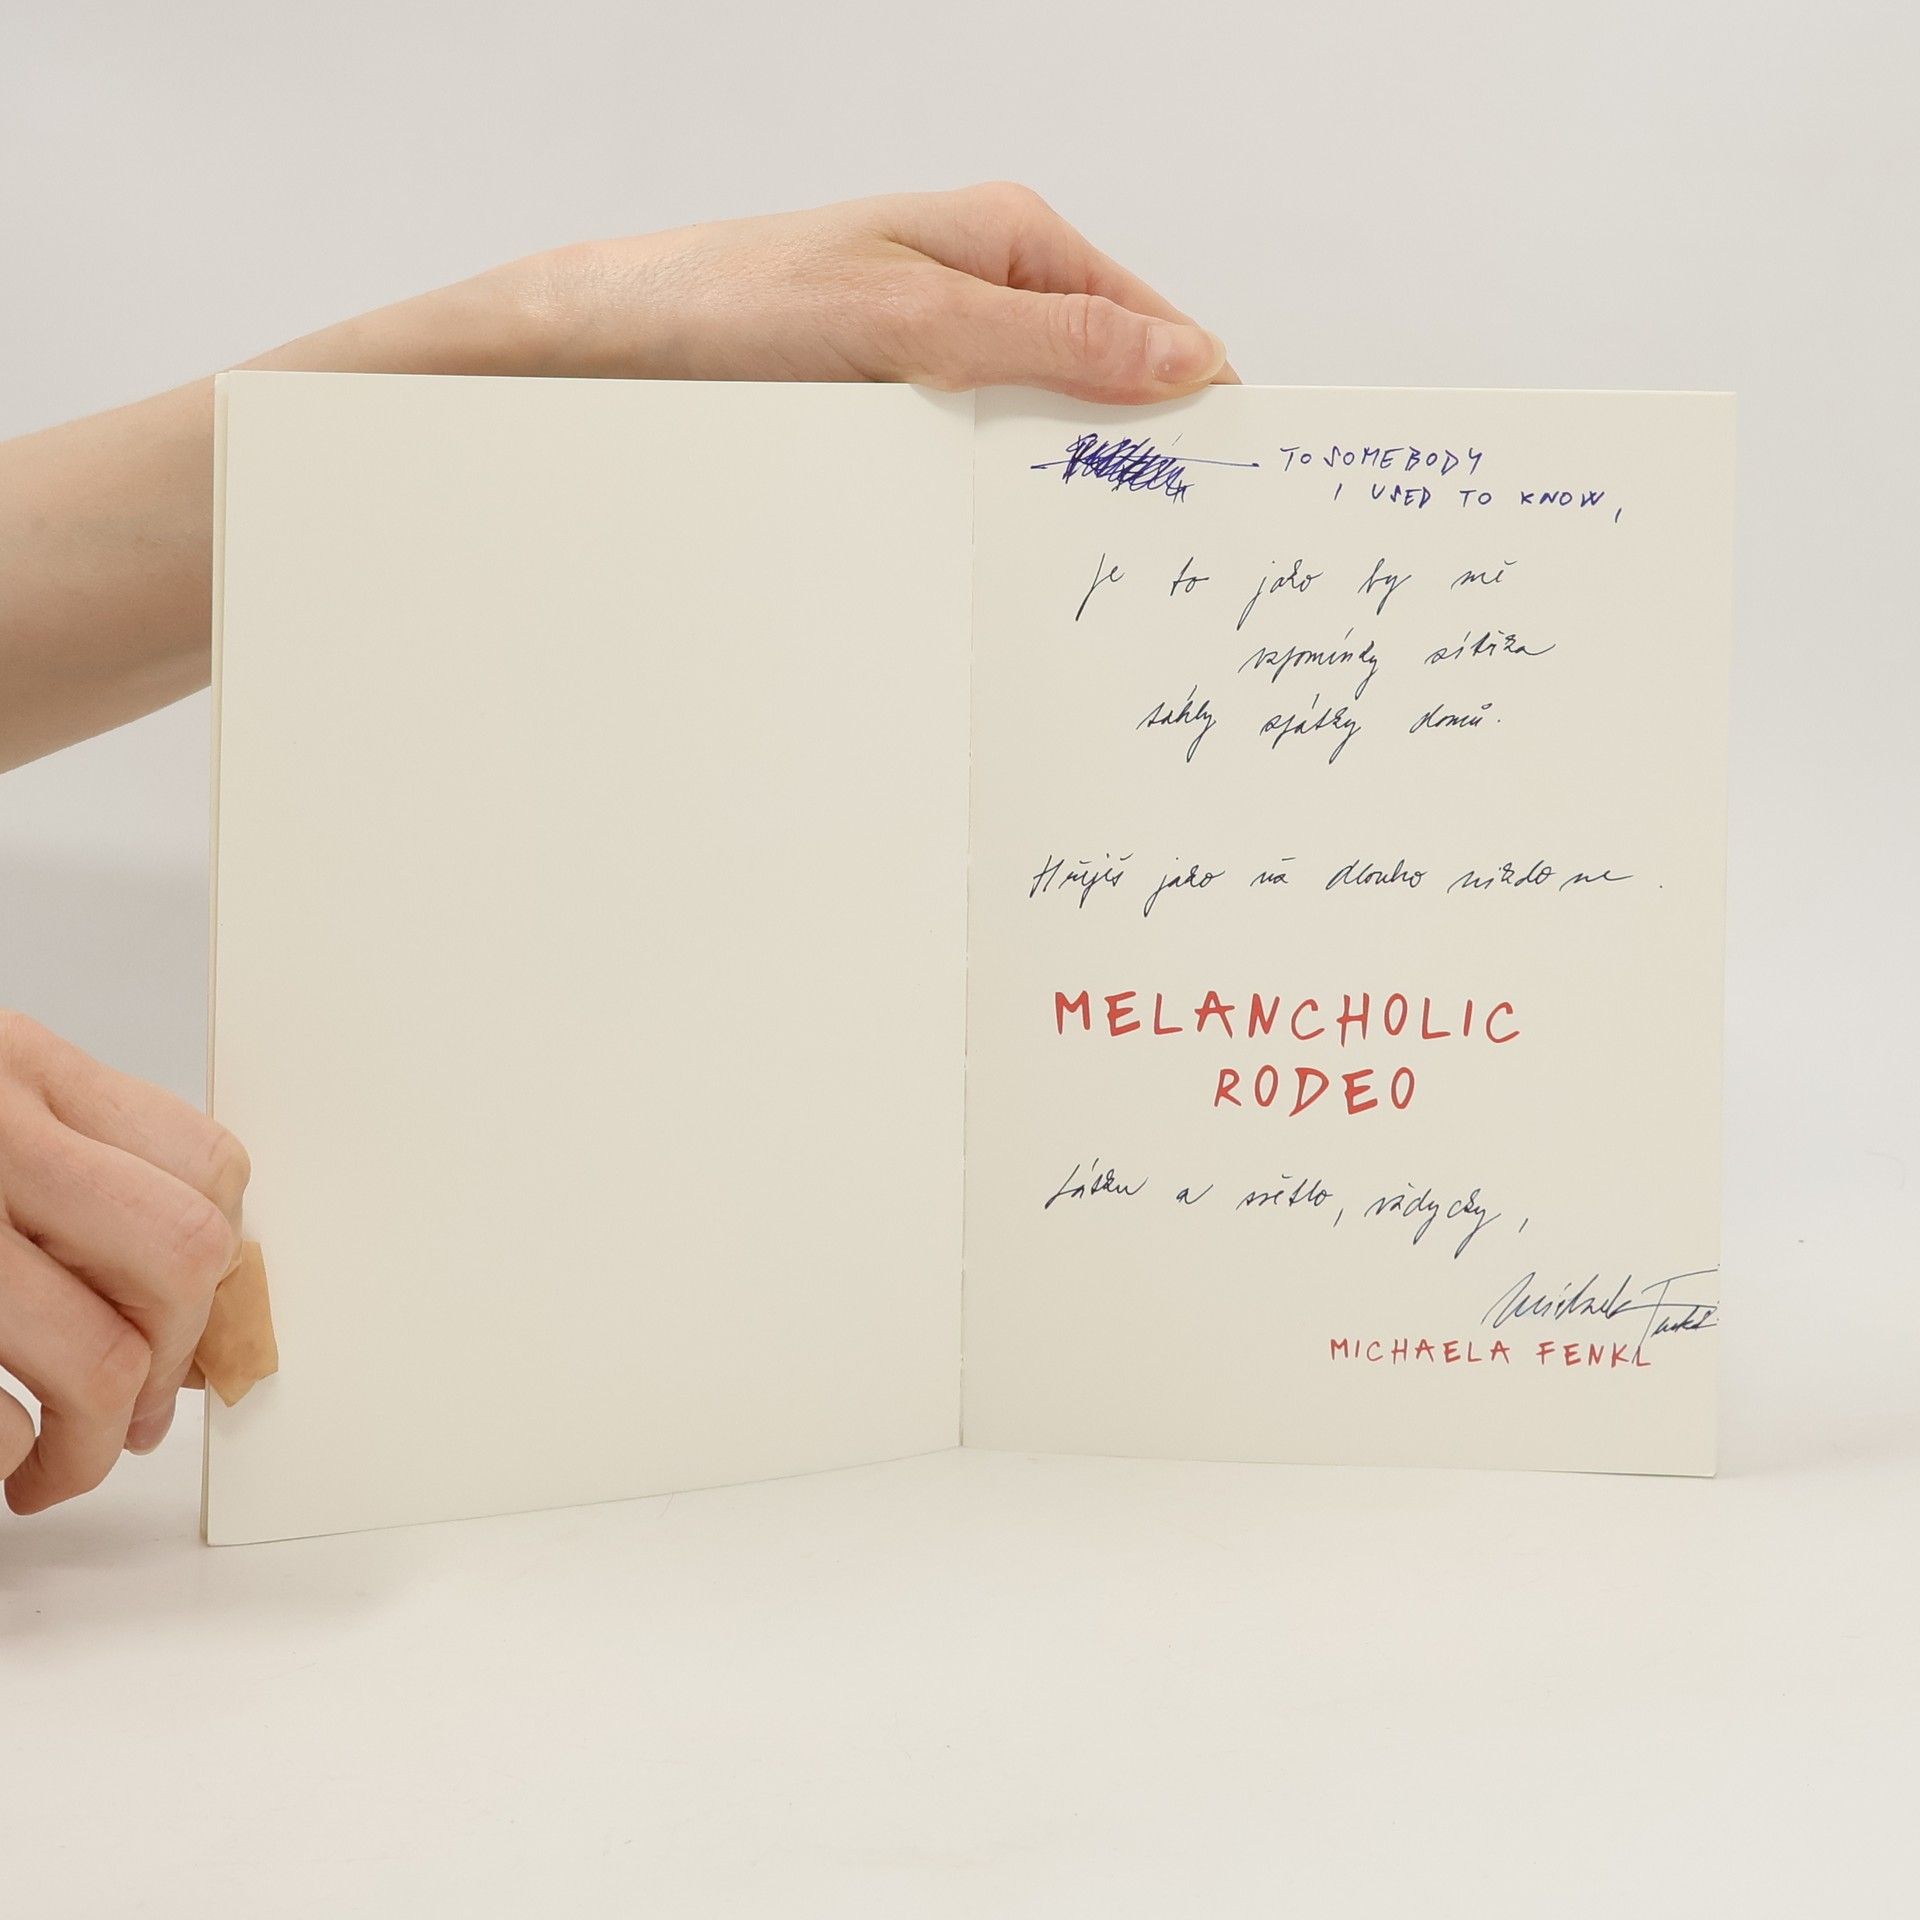 TO SOMEBODY
I USED TO KNOW,
Je to jako by mě
vzpomínky zítřka
táhly zpátky domů.
Hřeješ jako už dlouho nikdo ne.
MELANCHOLIC
RODEO
Lásku a světlo, vždycky,
Michaela Fenkl
MICHAELA FENKL